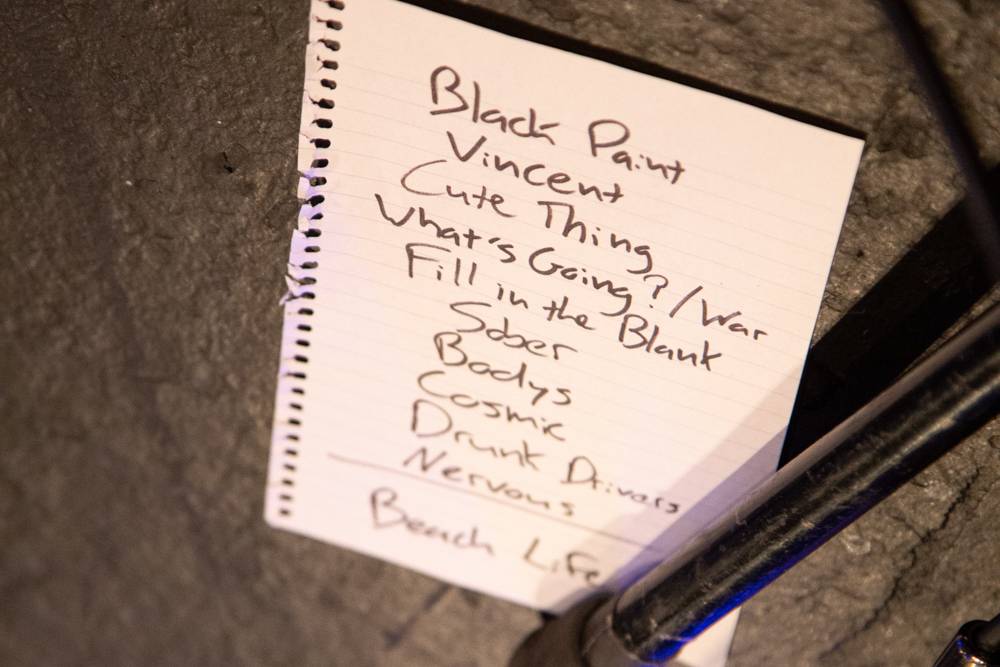 Black Paint
Vincent
Cute Thing
What's Going?/War
Fill in the Blank
Sober
Bodys
Cosmic
Drunk Drivers
Nervous
Beach Life